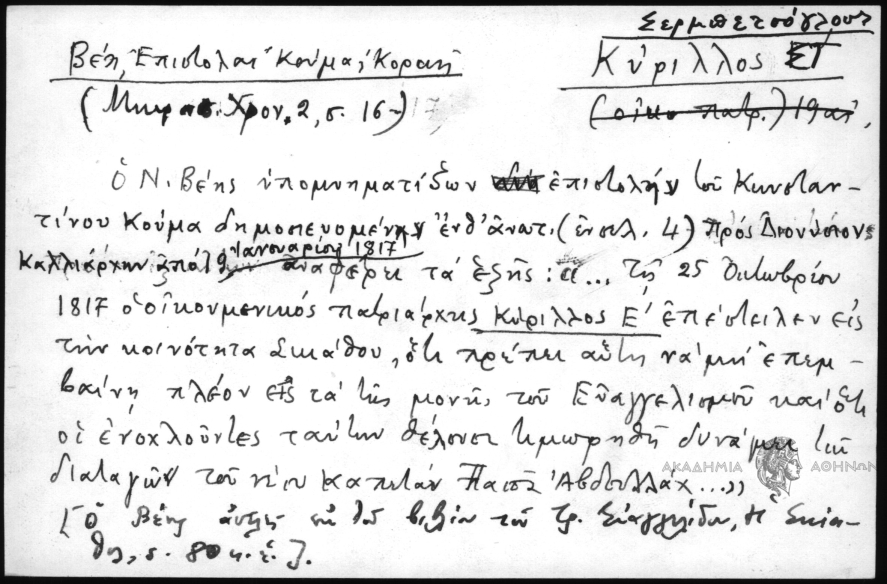 Σερμπετσόγλους
Βέη, Ἐπιστολαὶ Κούμα, Κοραῆ
Κύριλλος ΣΤ
(Μικρασ. Χρον. 2, σ. 16-17)
(οἰκ. πατρ.) 19 αἰ,
Ὁ Ν. Βέης ὑπομνηματίζων ἐπιστολὴν τοῦ Κωνσταν-
τίνου Κούμα δημοσιευομένην ἐνθ' ἀνωτ. (ἐν σελ. 4) πρὸς Διονύσιον
Καλλιάρχην ἀπὸ 9 Ἰανουαρίου 1817 ἀναφέρει τὰ ἑξῆς: «... τῇ 25 Ὀκτωβρίου
1817 ὁ οἰκουμενικός πατριάρχης Κύριλλος Ε' ἐπέστειλεν εἰς
τὴν κοινότητα Σκιάθου, ὅτι πρέπει αὕτη νὰ μὴ ἐπεμ-
βαίνῃ πλέον εἰς τὰ τῆς μονῆς τοῦ Εὐαγγελισμοῦ καὶ ὅτι
οἱ ἐνοχλοῦντες ταύτην θέλουσι τιμωρηθῆ δυνάμει τῶν
διαταγῶν τοῦ νέου καπετάν Πασᾶ Ἀβδουλλάχ ...»
[Ὁ Βέης ἀντλεῖ ἐκ τοῦ βιβλίου τοῦ Τρ. Εὐαγγελίδου, Ἡ Σκία-
θος, σ. 80 κ. ἑ.].
ΑΚΑΔΗΜΙΑ ΑΘΗΝΩΝ